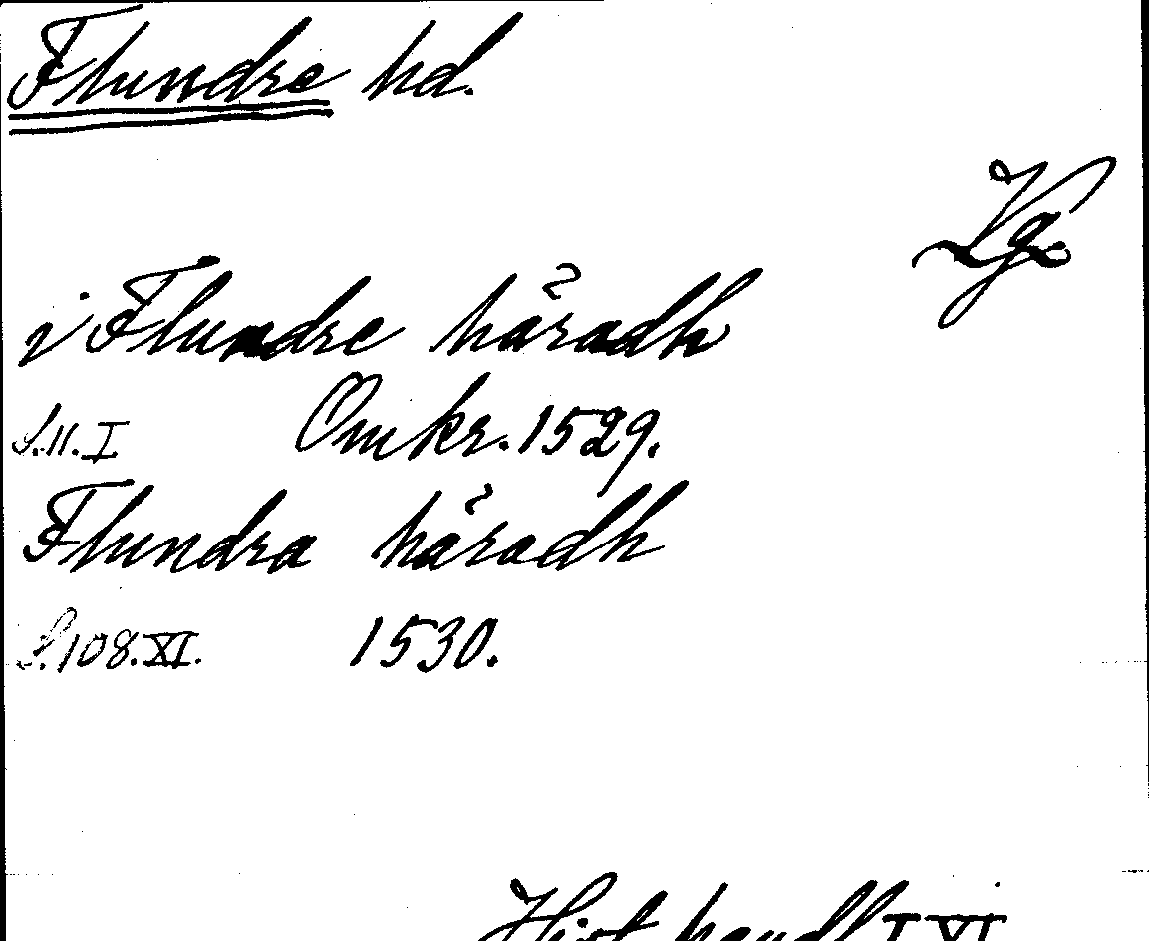 Flundre hd.
Vg.
j Flundre håradh
S. 11. I Omkr. 1529.
Flundra håradh
S. 108. XI. 1530.
Hist. handl. I, XI